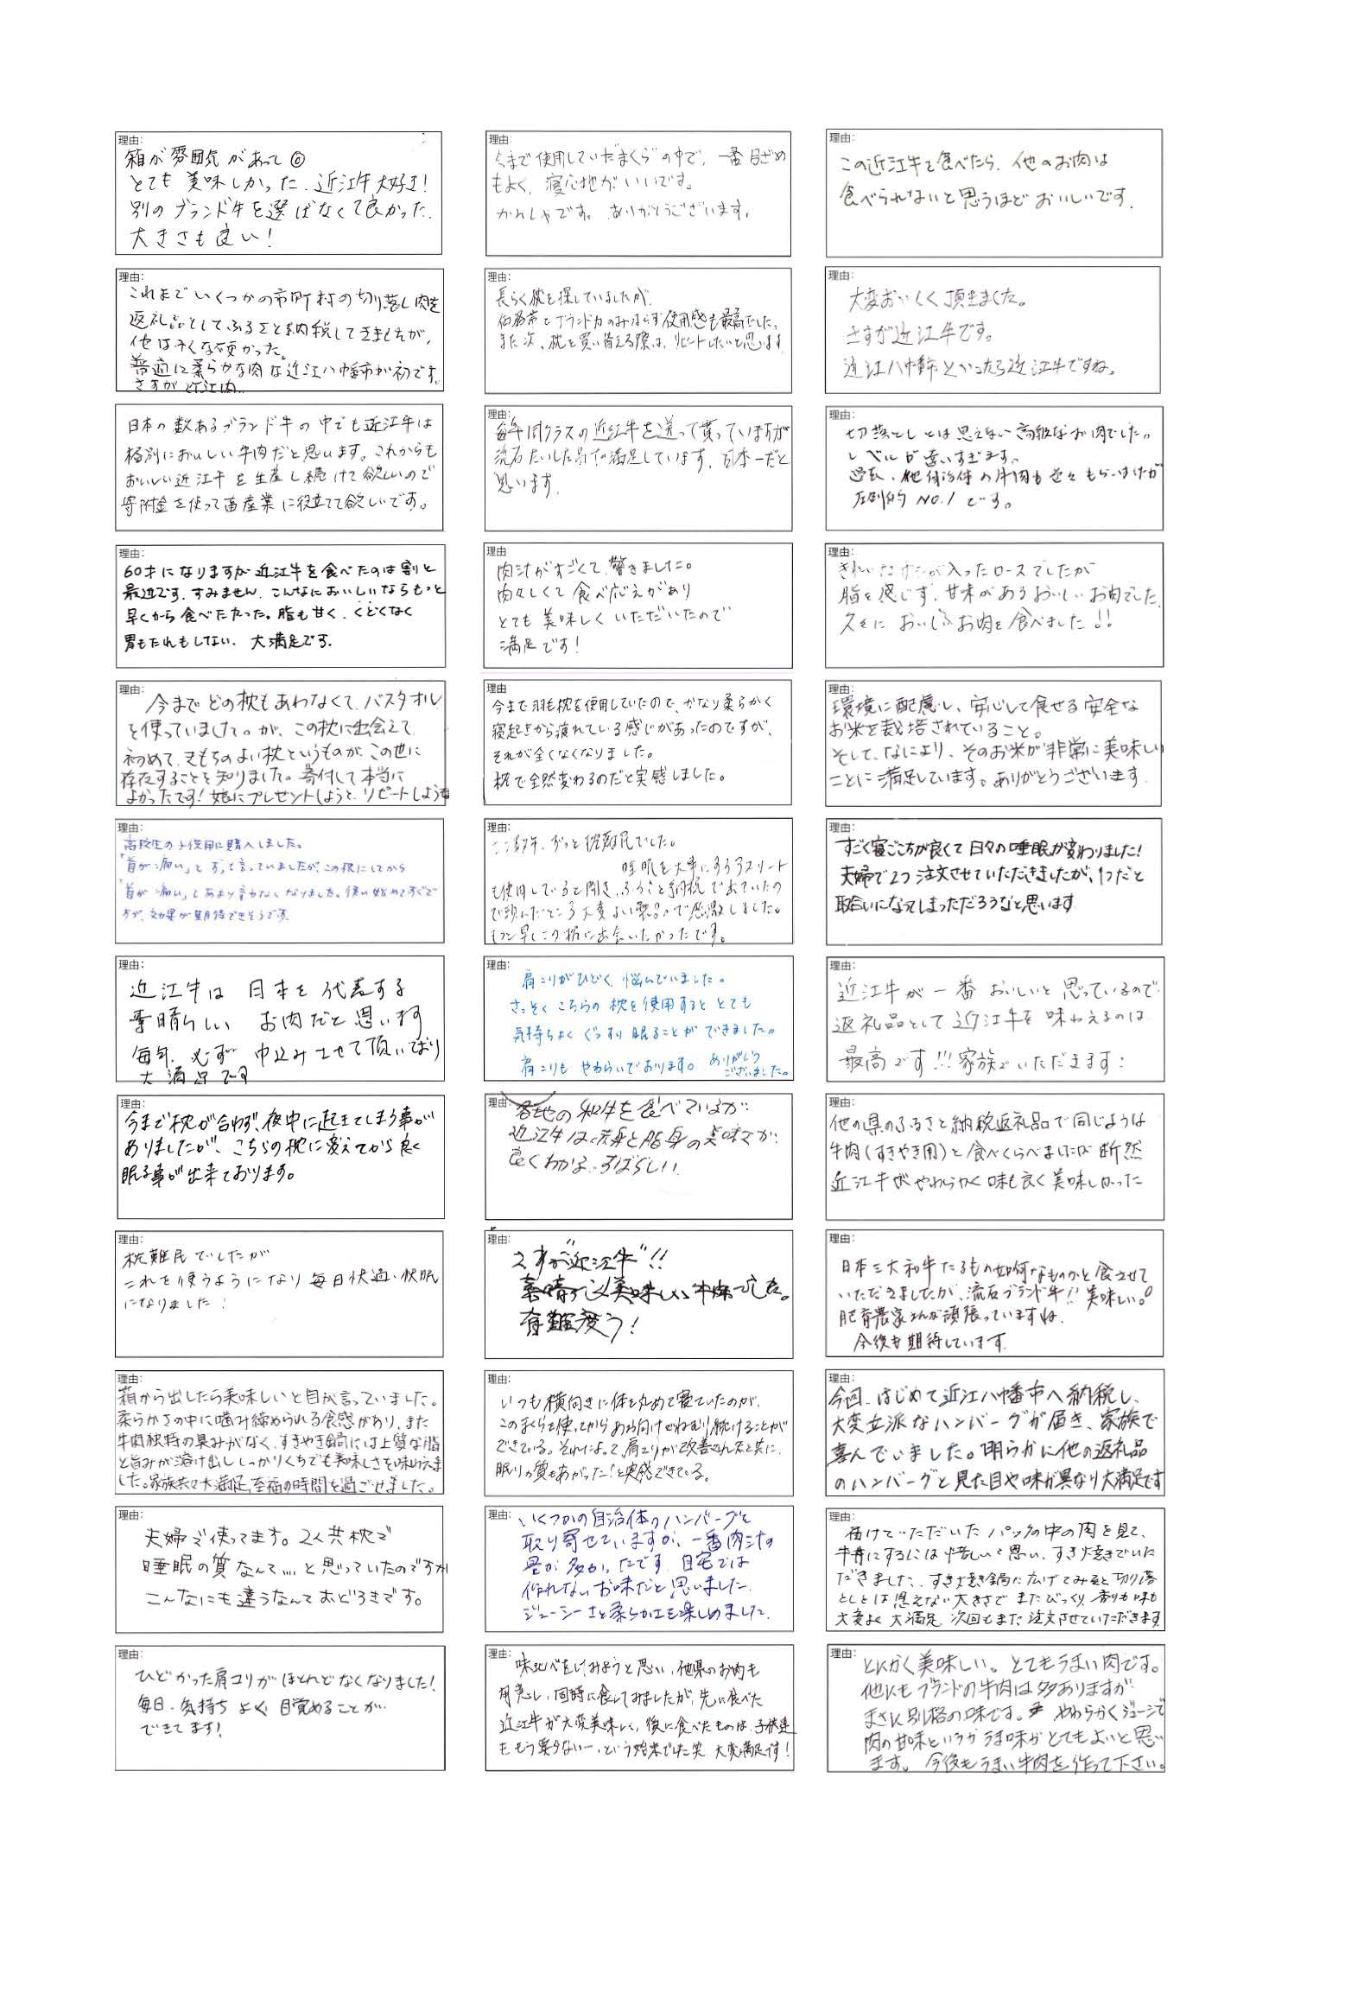 理由:
箱が雰囲気があって◎
とても美味しかった。近江牛大好き!
別のブランド牛を選ばなくて良かった。
大きさも良い!
理由:
今まで使用していたまくらの中で、一番目ざめ
もよく、寝心地がいいです。
かんしゃです。ありがとうございます。
理由:
この近江牛を食べたら、他のお肉は
食べられないと思うほどおいしいです。
理由:
これまでいくつかの市町村の切り落し肉を
返礼品としてふるさと納税してきましたが、
他は
普通に柔らかな肉な近江八幡市が初です。
さすが近江肉。
理由:
長らく枕を探していましたが、
ブランド力のみならず使用感も最高でした。
また次、枕を買い替える際は、リピートしたいと思います
理由:
大変おいしく頂きました。
さすが近江牛です。
近江八幡市とかったら近江牛ですね。
日本の数あるブランド牛の中でも近江牛は
格別においしい牛肉だと思います。これからも
おいしい近江牛を生産し続けて欲しいので
寄附金を使って畜産業に役立てて欲しいです。
理由:
毎年同クラスの近江牛を送って貰っていますが
流石たいした品で満足しています。日本一だと
思います。
理由:
切落としとは思えない高級なお肉でした。
レベルが違いすぎます。
過去、他自治体の牛肉も色々もらいましたが
圧倒的NO.1です。
理由:
60才になりますが近江牛を食べたのは割と
最近です。すみません。こんなにおいしいならもっと
早くから食べたかった。脂も甘く、くどくなく
胃もたれもしない。大満足です。
理由:
肉汁がすごくて驚きました。
肉々しくて食べ応えがあり
とても美味しくいただいたので
満足です!
理由:
きれいなサシが入ったロースでしたが
脂を感じず、甘味のあるおいしいお肉でした。
久々においしいお肉を食べました!!
理由:
今までどの枕もあわなくて、バスタオル
を使っていました。が、この枕に出会えて
初めて、きもちのよい枕というものが、この世に
存在することを知りました。寄付して本当に
よかったです!娘にプレゼントしようと、リピートしよう
理由:
今まで羽毛枕を使用していたので、かなり柔らかく
寝起きから疲れている感じがあったのですが、
それが全くなくなりました。
枕で全然変わるのだと実感しました。
理由:
環境に配慮し、安心して食せる安全な
お米を栽培されていること。
そして、なにより、そのお米が非常に美味しい
ことに満足しています。ありがとうございます。
理由:
高校生の子供用に購入しました。
「首が痛い」とずっと言っていましたが、この枕にしてから
「首が痛い」とあまり言わなくなりました。使い始めてすぐで
すが、効果が期待できそうです。
理由:
ここ数年、ずっと枕難民でした。
睡眠を大事にするアスリート
も使用していると聞き、ふるさと納税で出ていたの
で頼んだところ大変よい製品で感激しました。
もっと早くこの枕に出会いたかったです。
理由:
すごく寝ごこちが良くて日々の睡眠が変わりました!
夫婦で2つ注文させていただきましたが、1つだと
取合いになってしまっただろうなと思います
理由:
近江牛は日本を代表する
素晴らしいお肉だと思います
毎年、必ず申込みさせて頂いており
大満足です
理由:
肩こりがひどく、悩んでいました。
さっそくこちらの枕を使用するととても
気持ちよくぐっすり眠ることができました。
肩こりもやわらいでおります。ありがとう
ございました。
理由:
近江牛が一番おいしいと思っているので
返礼品として近江牛を味わえるのは
最高です!!!家族でいただきます!
理由:
今まで枕が合わず、夜中に起きてしまう事が
ありましたが、こちらの枕に変えてから良く
眠る事が出来ております。
理由:
各地の和牛を食べているが
近江牛は赤身と脂身の美味さが
良くわかる。すばらしい。
理由:
他の県のふるさと納税返礼品で同じような
牛肉(すきやき用)と食べくらべましたが断然
近江牛がやわらかく味も良く美味しかった
理由:
枕難民でしたが
これを使うようになり毎日快適・快眠
になりました!
理由:
さすが"近江牛"!!
素晴らしい美味しい牛肉でした。
有難度う!
理由:
日本三大和牛たるもの如何なものかと食させて
いただきましたが、流石ブランド牛!!美味しい。
肥育農家さんが頑張っていますね。
今後も期待しています。
理由:
箱から出したら美味しいと目が言っていました。
柔らかさの中に噛み締められる食感があり、また
牛肉独特の臭みがなく、すきやき鍋には上質な脂
と旨みが溶け出ししっかりくちでも美味しさを味わえま
した。家族共々大満足、至福の時間を過ごせました。
理由:
いつも横向きに体を丸めて寝ていたのが、
このまくらを使ってからあお向けでねむり続けることが
できている。それによって、肩こりが改善されたと共に、
眠りの質もあがった!と実感できている。
理由:
今回、はじめて近江八幡市へ納税し、
大変立派なハンバーグが届き、家族で
喜んでいました。明らかに他の返礼品
のハンバーグと見た目や味が異なり大満足です
理由:
夫婦で使ってます。2人共枕で
睡眠の質なんて....と思っていたのですが
こんなにも違うなんておどろきです。
理由:
いくつかの自治体のハンバーグを
取り寄せていますが、一番肉汁の
量が多かったです。自宅では
作れないお味だと思いました。
ジューシーさと柔らかさを楽しめました。
理由:
届けていただいたパックの中の肉を見て、
牛丼にするには惜しいと思い、すき焼きでいた
だきました。すき焼き鍋に広げてみると切り落
としとは思えない大きさでまたびっくり。香りも味も
大変よく大満足。次回もまた注文させていただきます
理由:
ひどかった肩コリがほとんどなくなりました!
毎日、気持ちよく目覚めることが
できてます!
理由:
味比べをしてみようと思い、他県のお肉も
用意し、同時に食してみましたが、先に食べた
近江牛が大変美味しく、後に食べたものは、子供達
ももう要らないー、という始末でした笑 大変満足です!
理由:
とにかく美味しい。とてもうまい肉です。
他にもブランドの牛肉は多ありますが
まさに別格の味です。やわらかくジューシで
肉の甘味というかうま味がとてもよいと思い
ます。今後もうまい牛肉を作って下さい。